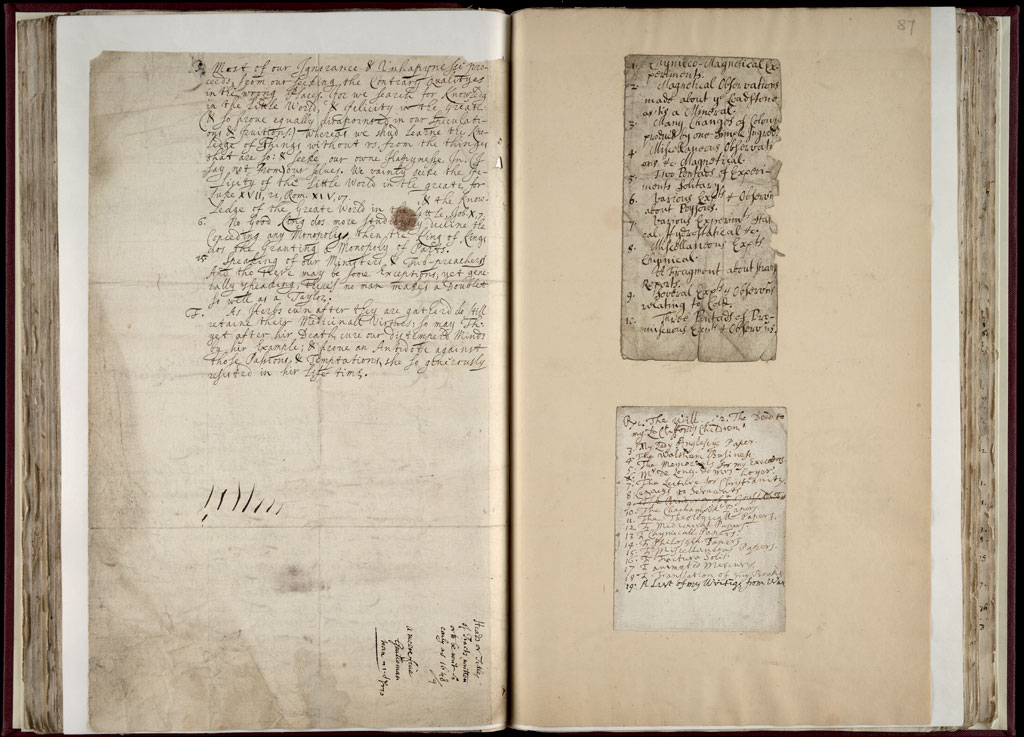 Most of our Ignorance & Unhapynesse pro-
ceeds from our seeking the Contrary Qualityes
in the wrong Place (for we search for Knowledg
in the Little World, & felicity in the Greate
& so prove equally disapointed in our Speculati-
ons & fruitions) Whereas we shud learne the Know-
ledge of Things without us, from the things
that are so: & seeke our owne Hapynesse In (I
say not From) our selves. We vainly seeke the fe-
licity of the Little World in the greate, for
Luke XVII, 21, Rom. XIV, 17. & the Know-
ledge of the Greate World in the Little, Job. X, 7.
6. No Good King dos more decline the
Conceding any Monopoly, then the King of Kings
dos the Granting a Monopoly of Parts.
15. Speaking of our Ministers & Tub-preachers
And tho there may be some Exceptions, yet gene-
rally speading, theres no man makes a Doublet
so well as a Taylor.
F. As Herbs eu'n after they are gather'd do still
retaine their Medicinall Virtues: so may
yet after her Death, cure our distemper'd Minds
by her Example; & prove an Antidote against
those Passions & Temptations she so generously
resisted in her Life time.
Heads or Titles
of Tracts written
or to be writ so
early as 1648,
a meere
Gentleman
87
1. Chymico-Magnetical Ex-
periments.
2. Magnetical Observations
made about ye Loadstone
as 'tis a Mineral.
3. Many Changes of Colours
produc'd by one simple Ingredt
4. Miscellaneous Observati
ons &c Magnetical.
5. Two Pentads of Experi-
ments Solitary.
6. Various Expts & Observons
about Poysons.
7. Various Experimts Stati
cal, Hydrostatical &c.
8. Miscellaneous Expts
Chymical.
A Fragment about strang
Reports.
9. Several Expts & Observons
relating to Cold.
10. Three Pentads of Pro-
miscuous Expts & Observons.
1. The Will. 2. The Deed to
my Ld Cliffords Children
3. My Ldy Anglesey's Paper.
4. The Walsham Business.
5. The Memorials for my Executors
6. Mr de Long. & Mrs Loyor
7. The Lecture for Christianity
8. Legacys to Servants
10. The Clapham's Papers.
11. The Theologicall Papers.
12. T Medicinal Papers.
13. T Chymicall Papers.
14. T Philosoph. Papers.
15. T Miscellaneous Papers.
16. T Tinctura Solis.
17. T animated Mercury
18. T Translation of my Books
19. A List of my Writings from War